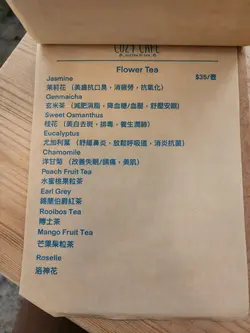 COZY CAFE
Flower Tea
Jasmine $35/壺
茉莉花 (美膚抗口臭，消疲勞，抗氧化)
Genmaicha
玄米茶 (減肥消脂，降血糖/血壓，舒壓安眠)
Sweet Osmanthus
桂花 (美白去斑，排毒，養生潤肺)
Eucalyptus
尤加利葉 (舒緩鼻炎，放鬆呼吸道，消炎抗菌)
Chamomile
洋甘菊 (改善失眠/頭痛，美肌)
Peach Fruit Tea
水蜜桃果粒茶
Earl Grey
錫蘭伯爵紅茶
Rooibos Tea
博士茶
Mango Fruit Tea
芒果果粒茶
Roselle
洛神花